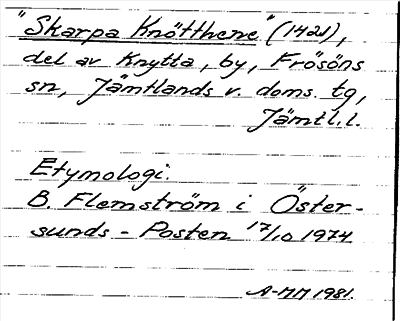 "Skarpa Knötthene" (1421),
del av Knytta, by, Frösöns
sn, Jämtlands v. doms. tg,
Jämtl.l.
Etymologi.
B. Flemström i Öster-
sunds-Posten 17/10 1974
A-MM 1981.